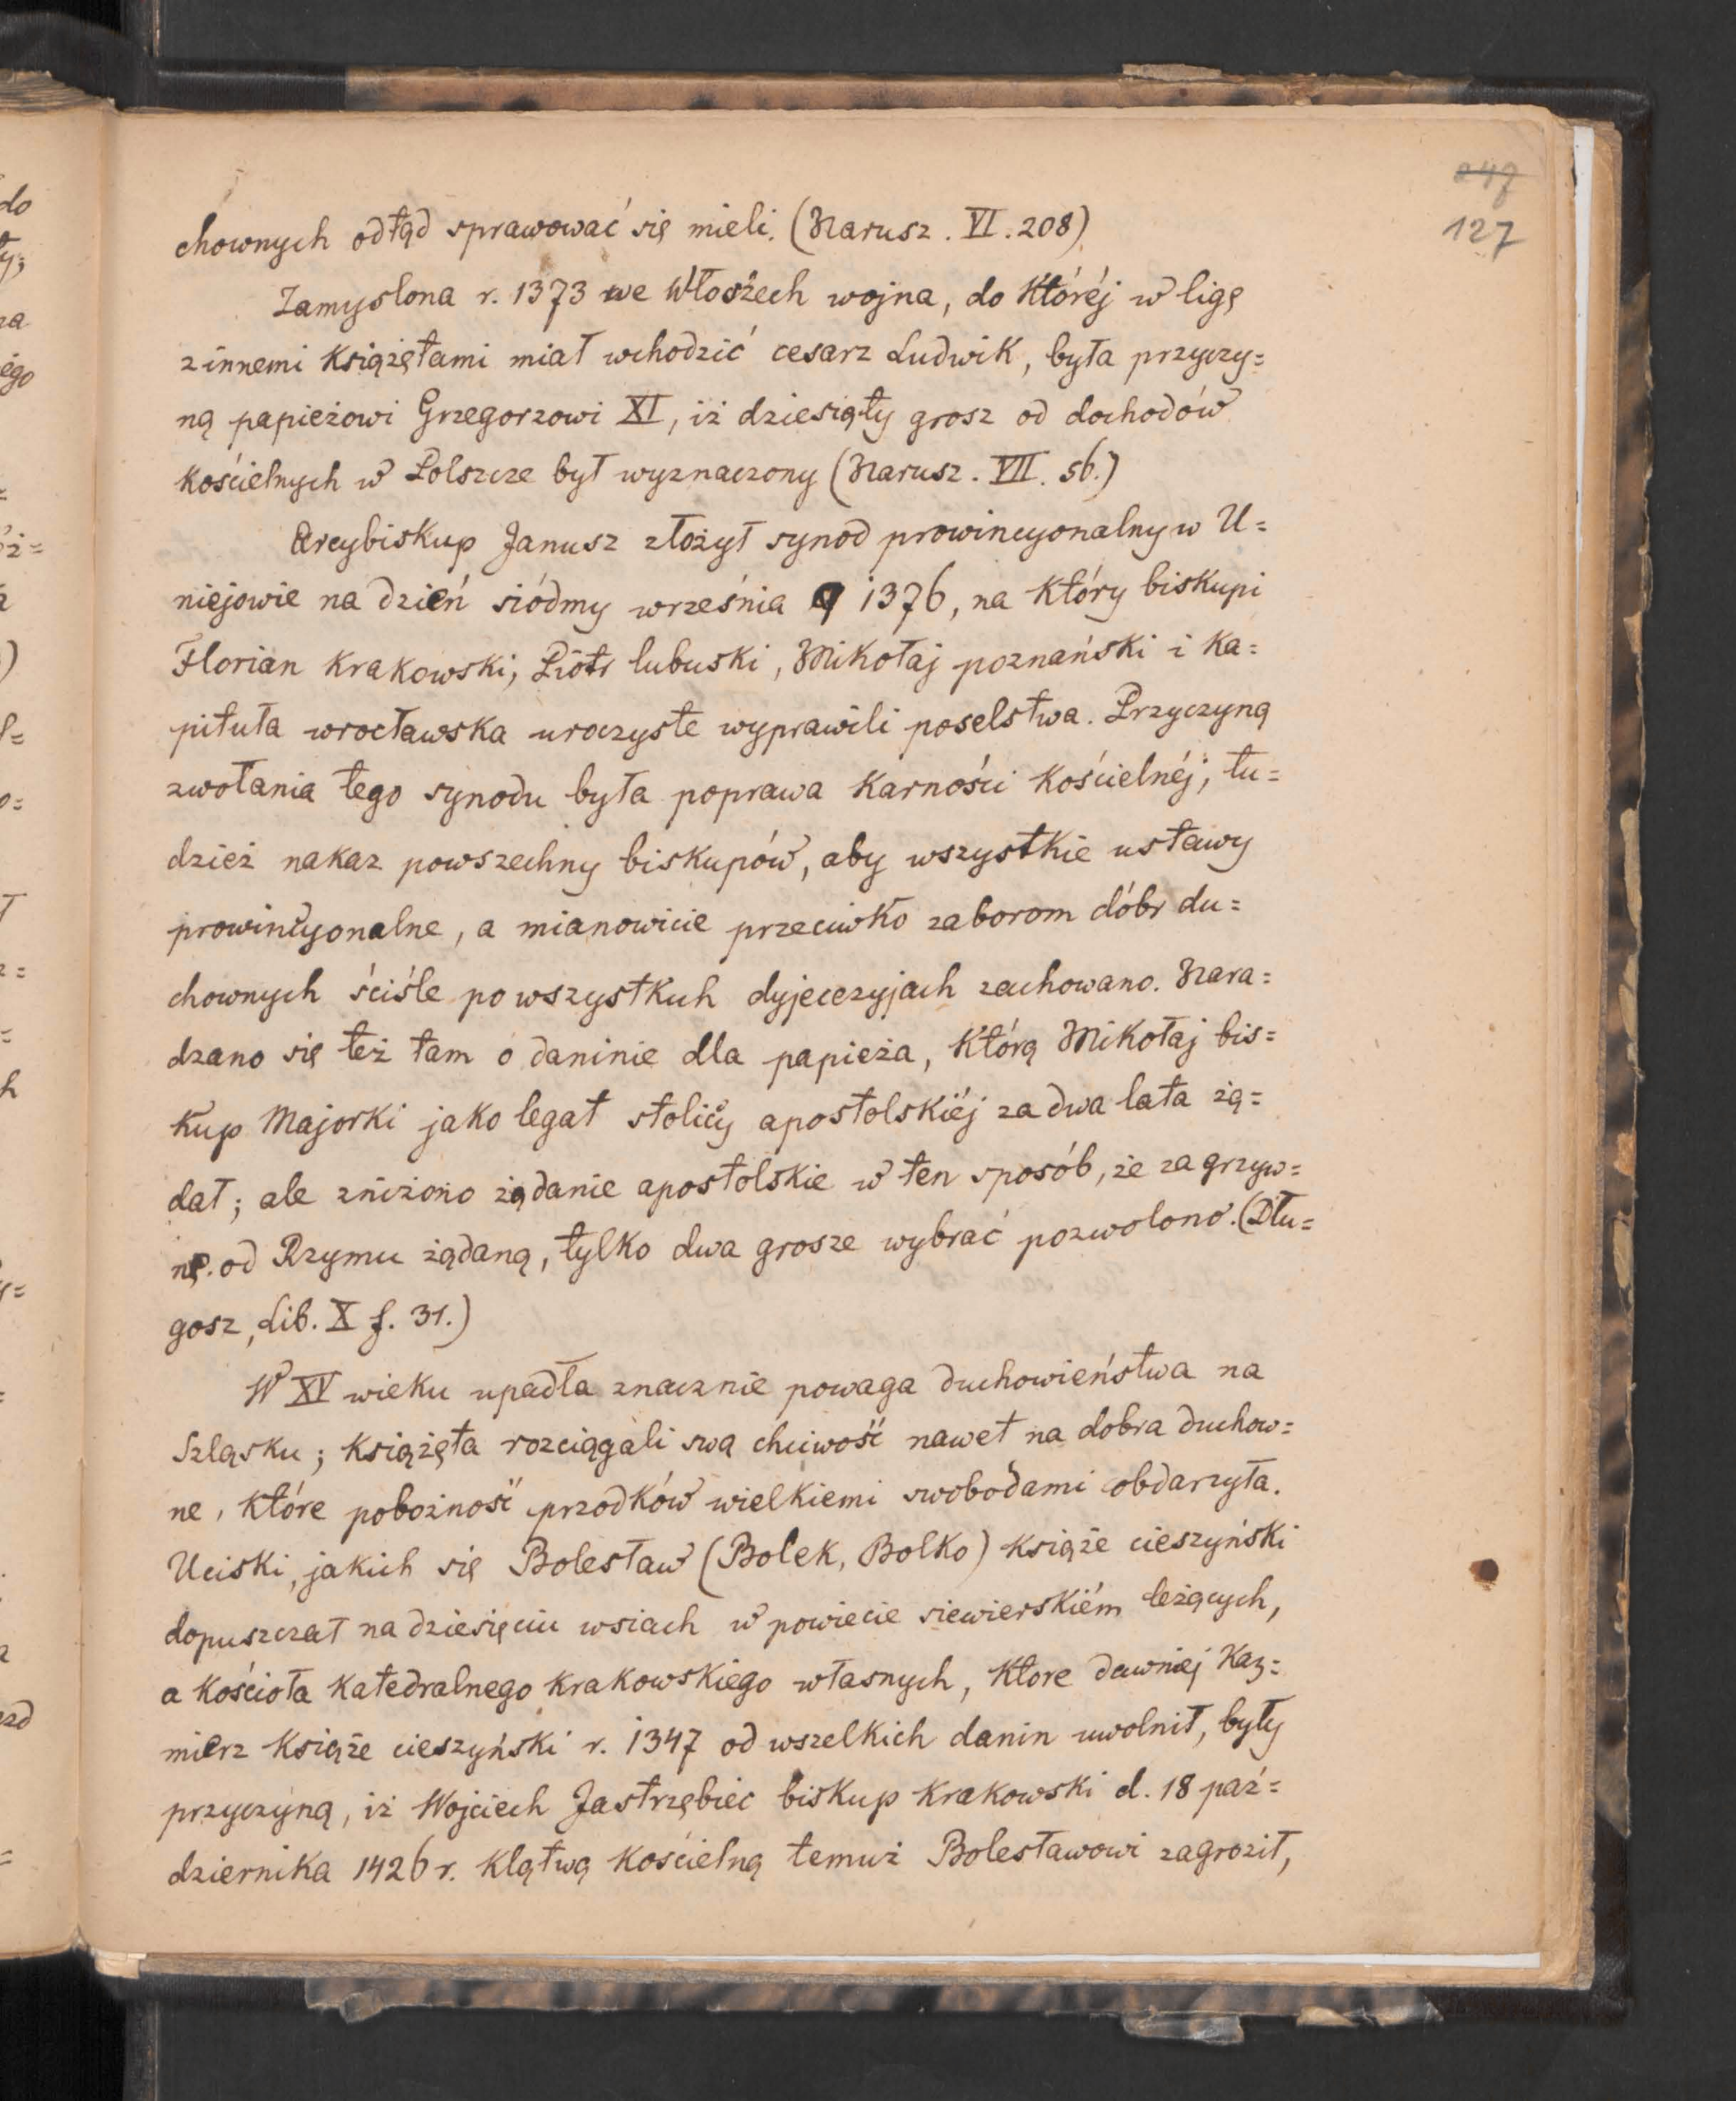 247
127
chownych odtąd sprawować się mieli. (Narusz. VI. 208)
Zamyslona r. 1373 we Włoszech wojna, do któréj w ligę
z innemi książętami miał wchodzić cesarz Ludwik, była przyczy=
ną papieżowi Grzegorzowi XI, iż dziesiąty grosz od dochodów
kościelnych w Polszcze był wyznaczony (Narusz. VII. 56.)
Arcybiskup Janusz złożył synod prowincyonalny w U=
niejowie na dzień siódmy września 1376, na który biskupi
Florian krakowski, Piotr lubuski, Mikołaj poznański i ka=
pituła wrocławska uroczyste wyprawili poselstwa. Przyczyną
zwołania tego synodu była poprawa karności kościelnéj, tu=
dzież nakaz powszechny biskupów, aby wszystkie ustawy
prowincyonalne, a mianowicie przeciwko zaborom dóbr du=
chownych ściśle po wszystkich dyjecezyjach zachowano. Nara=
dzano się też tam o daninie dla papieża, którą Mikołaj bis=
kup Majorki jako legat stolicy apostolskiéj za dwa lata żą=
dał; ale zniżono żądanie apostolskie w ten sposób, że za grzyw=
nę od Rzymu żądaną, tylko dwa grosze wybrać pozwolono. (Dłu=
gosz, Lib. X f. 31.)
W XV wieku upadła znacznie powaga duchowieństwa na
Szląsku; książęta rozciągali swą chciwość nawet na dobra duchow=
ne, które pobożność przodków wielkiemi swobodami obdarzyła.
Uciski, jakich się Bolesław (Bolek, Bolko) książe cieszyński
dopuszczał na dziesięciu wsiach w powiecie siewierskiém leżących,
a kościoła katedralnego krakowskiego własnych, które dawniej Kaz=
mierz książe cieszyński r. 1347 od wszelkich danin uwolnił, były
przyczyną, iż Wojciech Jastrzębiec biskup krakowski d. 18 paź=
dziernika 1426 r. klątwą kościelną temuż Bolesławowi zagroził,